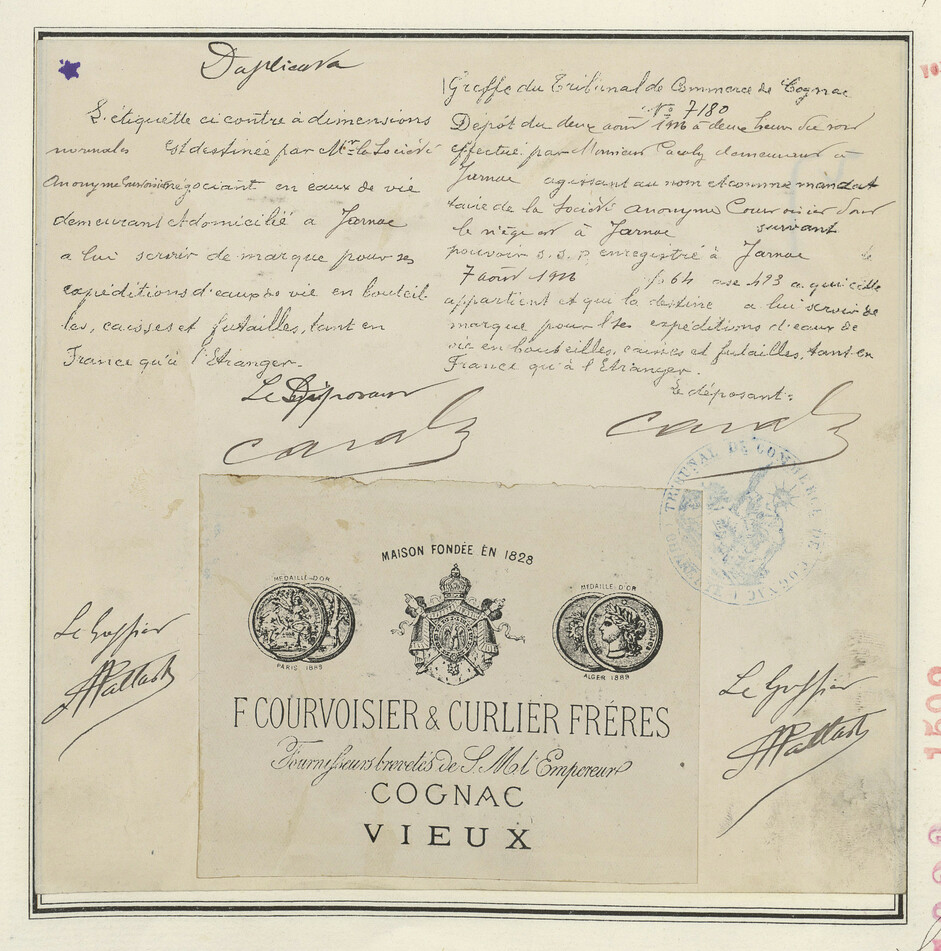 Duplicata
L'étiquette ci contre à dimensions
normales est destinée par Mr la Société
Anonyme Courvoisier négociant en eaux de vie
demeurant et domicilié a Jarnac
a lui servir de marque pour ses
expéditions d'eaux de vie en bouteil-
les, caisses et futailles, tant en
France qu'à l'Etranger.
Le Déposant
Greffe du Tribunal de Commerce de Cognac
No 7180
Dépôt du deux août à deux heures du soir
effectué par Monsieur demeurant à
Jarnac agissant au nom et comme manda
taire de la Société Anonyme Courvoisier dont
le siège est à Jarnac suivant
pouvoir s.s.p. enregistré à Jarnac le
7 août fo 64 case 493 a qui elle
appartient et qui la destine a lui servir de
marque pour ses expéditions d'eaux de
vie en bouteilles, caisses et futailles, tant en
France qu'à l'Etranger.
Le déposant:
TRIBUNAL DE COMMERCE DE COGNAC (CHARENTE)
MAISON FONDÉE EN 1828
MEDAILLE-D'OR
PARIS 1889
MEDAILLE-D'OR
ALGER 1889
F. COURVOISIER & CURLIER FRÉRES
Fournisseurs brevetés de S.M. l'Empereur
COGNAC
VIEUX
Le Greffier
Le Greffier
1502